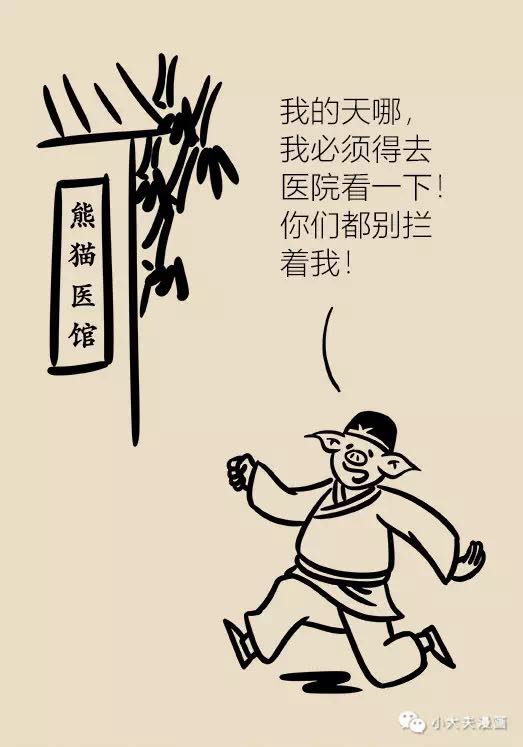 熊猫医馆
我的天哪，
我必须得去
医院看一下！
你们都别拦
着我！
小大夫漫画